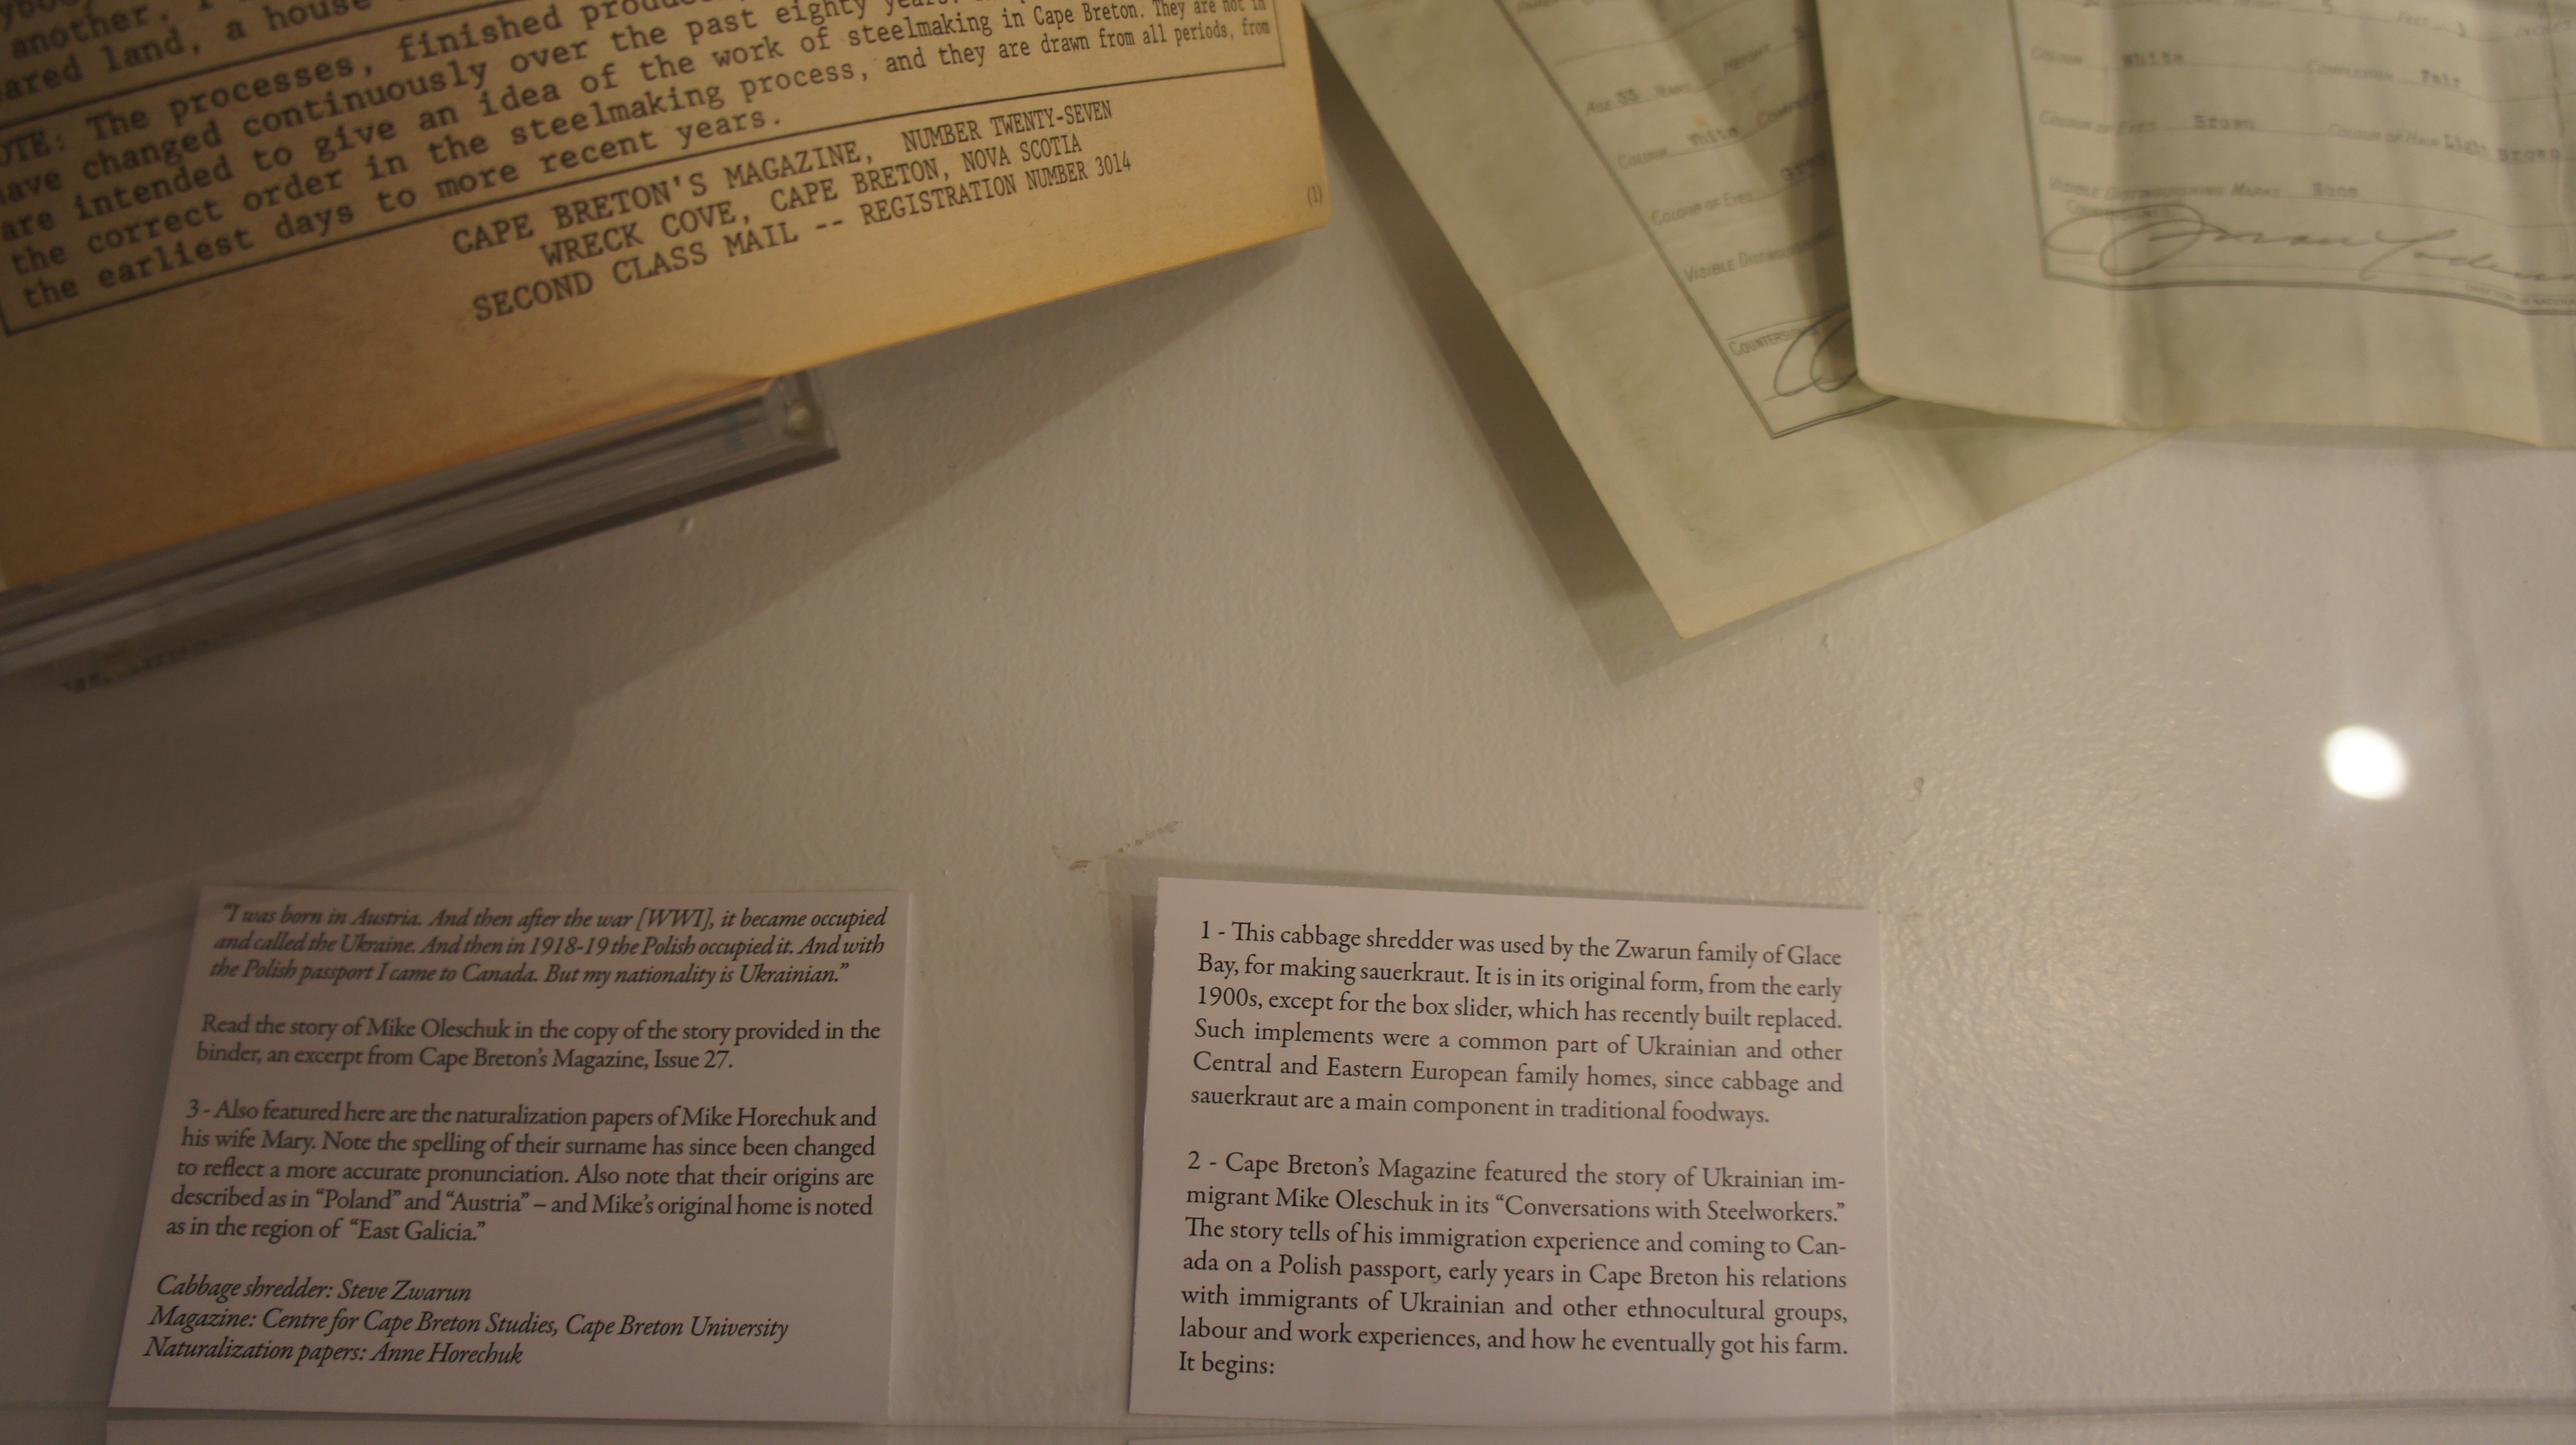 another.
ared land, a house
OTE: The processes, finished
have changed continuously over the past eighty
are intended to give an idea of the work of steelmaking in Cape Breton. They are not in
the correct order in the steelmaking process, and they are drawn from all periods, from
the earliest days to more recent years.
CAPE BRETON'S MAGAZINE, NUMBER TWENTY-SEVEN
WRECK COVE, CAPE BRETON, NOVA SCOTIA
SECOND CLASS MAIL -- REGISTRATION NUMBER 3014
(1)
AGE 33 YEARS HEIGHT
COLOUR White
COLOUR OF EYES
VISIBLE
COLOUR White COMPLEXION Fair
COLOUR OF EYES Brown COLOUR OF HAIR Light Brown
VISIBLE DISTINGUISHING MARKS None
"I was born in Austria. And then after the war [WWI], it became occupied
and called the Ukraine. And then in 1918-19 the Polish occupied it. And with
the Polish passport I came to Canada. But my nationality is Ukrainian."
Read the story of Mike Oleschuk in the copy of the story provided in the
binder, an excerpt from Cape Breton's Magazine, Issue 27.
3 - Also featured here are the naturalization papers of Mike Horechuk and
his wife Mary. Note the spelling of their surname has since been changed
to reflect a more accurate pronunciation. Also note that their origins are
described as in "Poland" and "Austria" – and Mike's original home is noted
as in the region of "East Galicia."
Cabbage shredder: Steve Zwarun
Magazine: Centre for Cape Breton Studies, Cape Breton University
Naturalization papers: Anne Horechuk
1 - This cabbage shredder was used by the Zwarun family of Glace
Bay, for making sauerkraut. It is in its original form, from the early
1900s, except for the box slider, which has recently built replaced.
Such implements were a common part of Ukrainian and other
Central and Eastern European family homes, since cabbage and
sauerkraut are a main component in traditional foodways.
2 - Cape Breton's Magazine featured the story of Ukrainian im-
migrant Mike Oleschuk in its "Conversations with Steelworkers."
The story tells of his immigration experience and coming to Can-
ada on a Polish passport, early years in Cape Breton his relations
with immigrants of Ukrainian and other ethnocultural groups,
labour and work experiences, and how he eventually got his farm.
It begins: